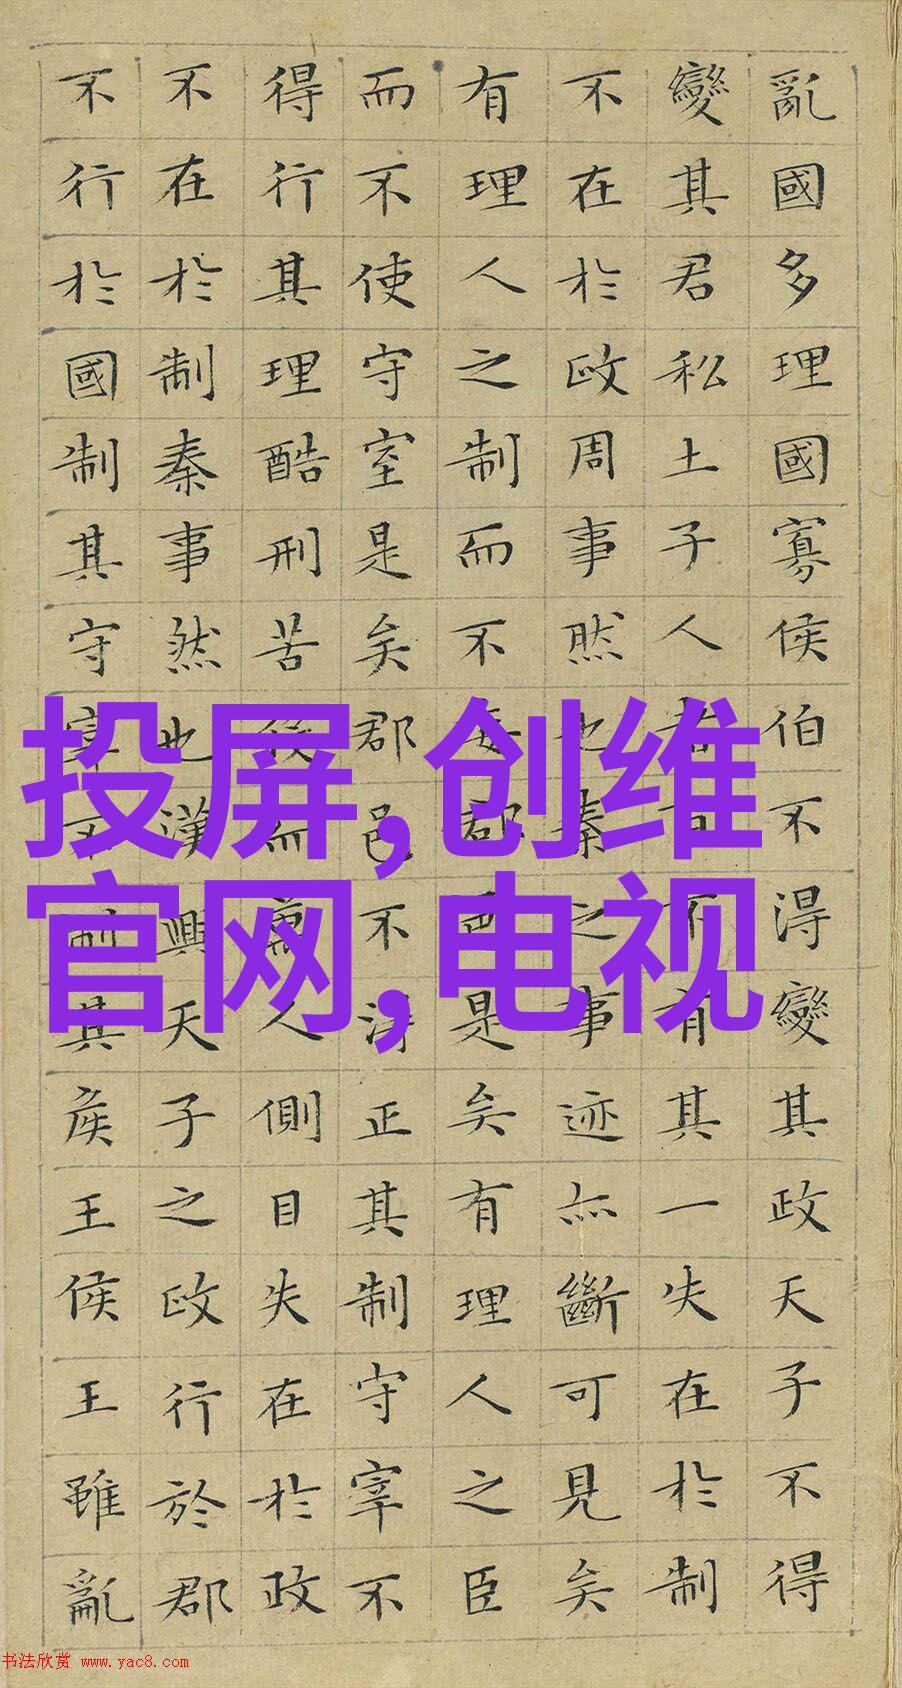 亂國多理國寡侯伯不得變其政天子不得
變其君私土子人者百不有其一失在於制
不在於政周事然也秦之事迹亦斷可見矣
有理人之制而不委郡邑是矣有理人之臣
而不使守宰是矣郡邑不得正其制守宰不
得行其理酷刑苦役而萬人側目失在於政
不在於制秦事然也漢興天子之政行於郡
不行於國制其守宰不制其侯王侯王雖亂
投屏,创维
官网,电视
书法欣赏 www.yac8.com